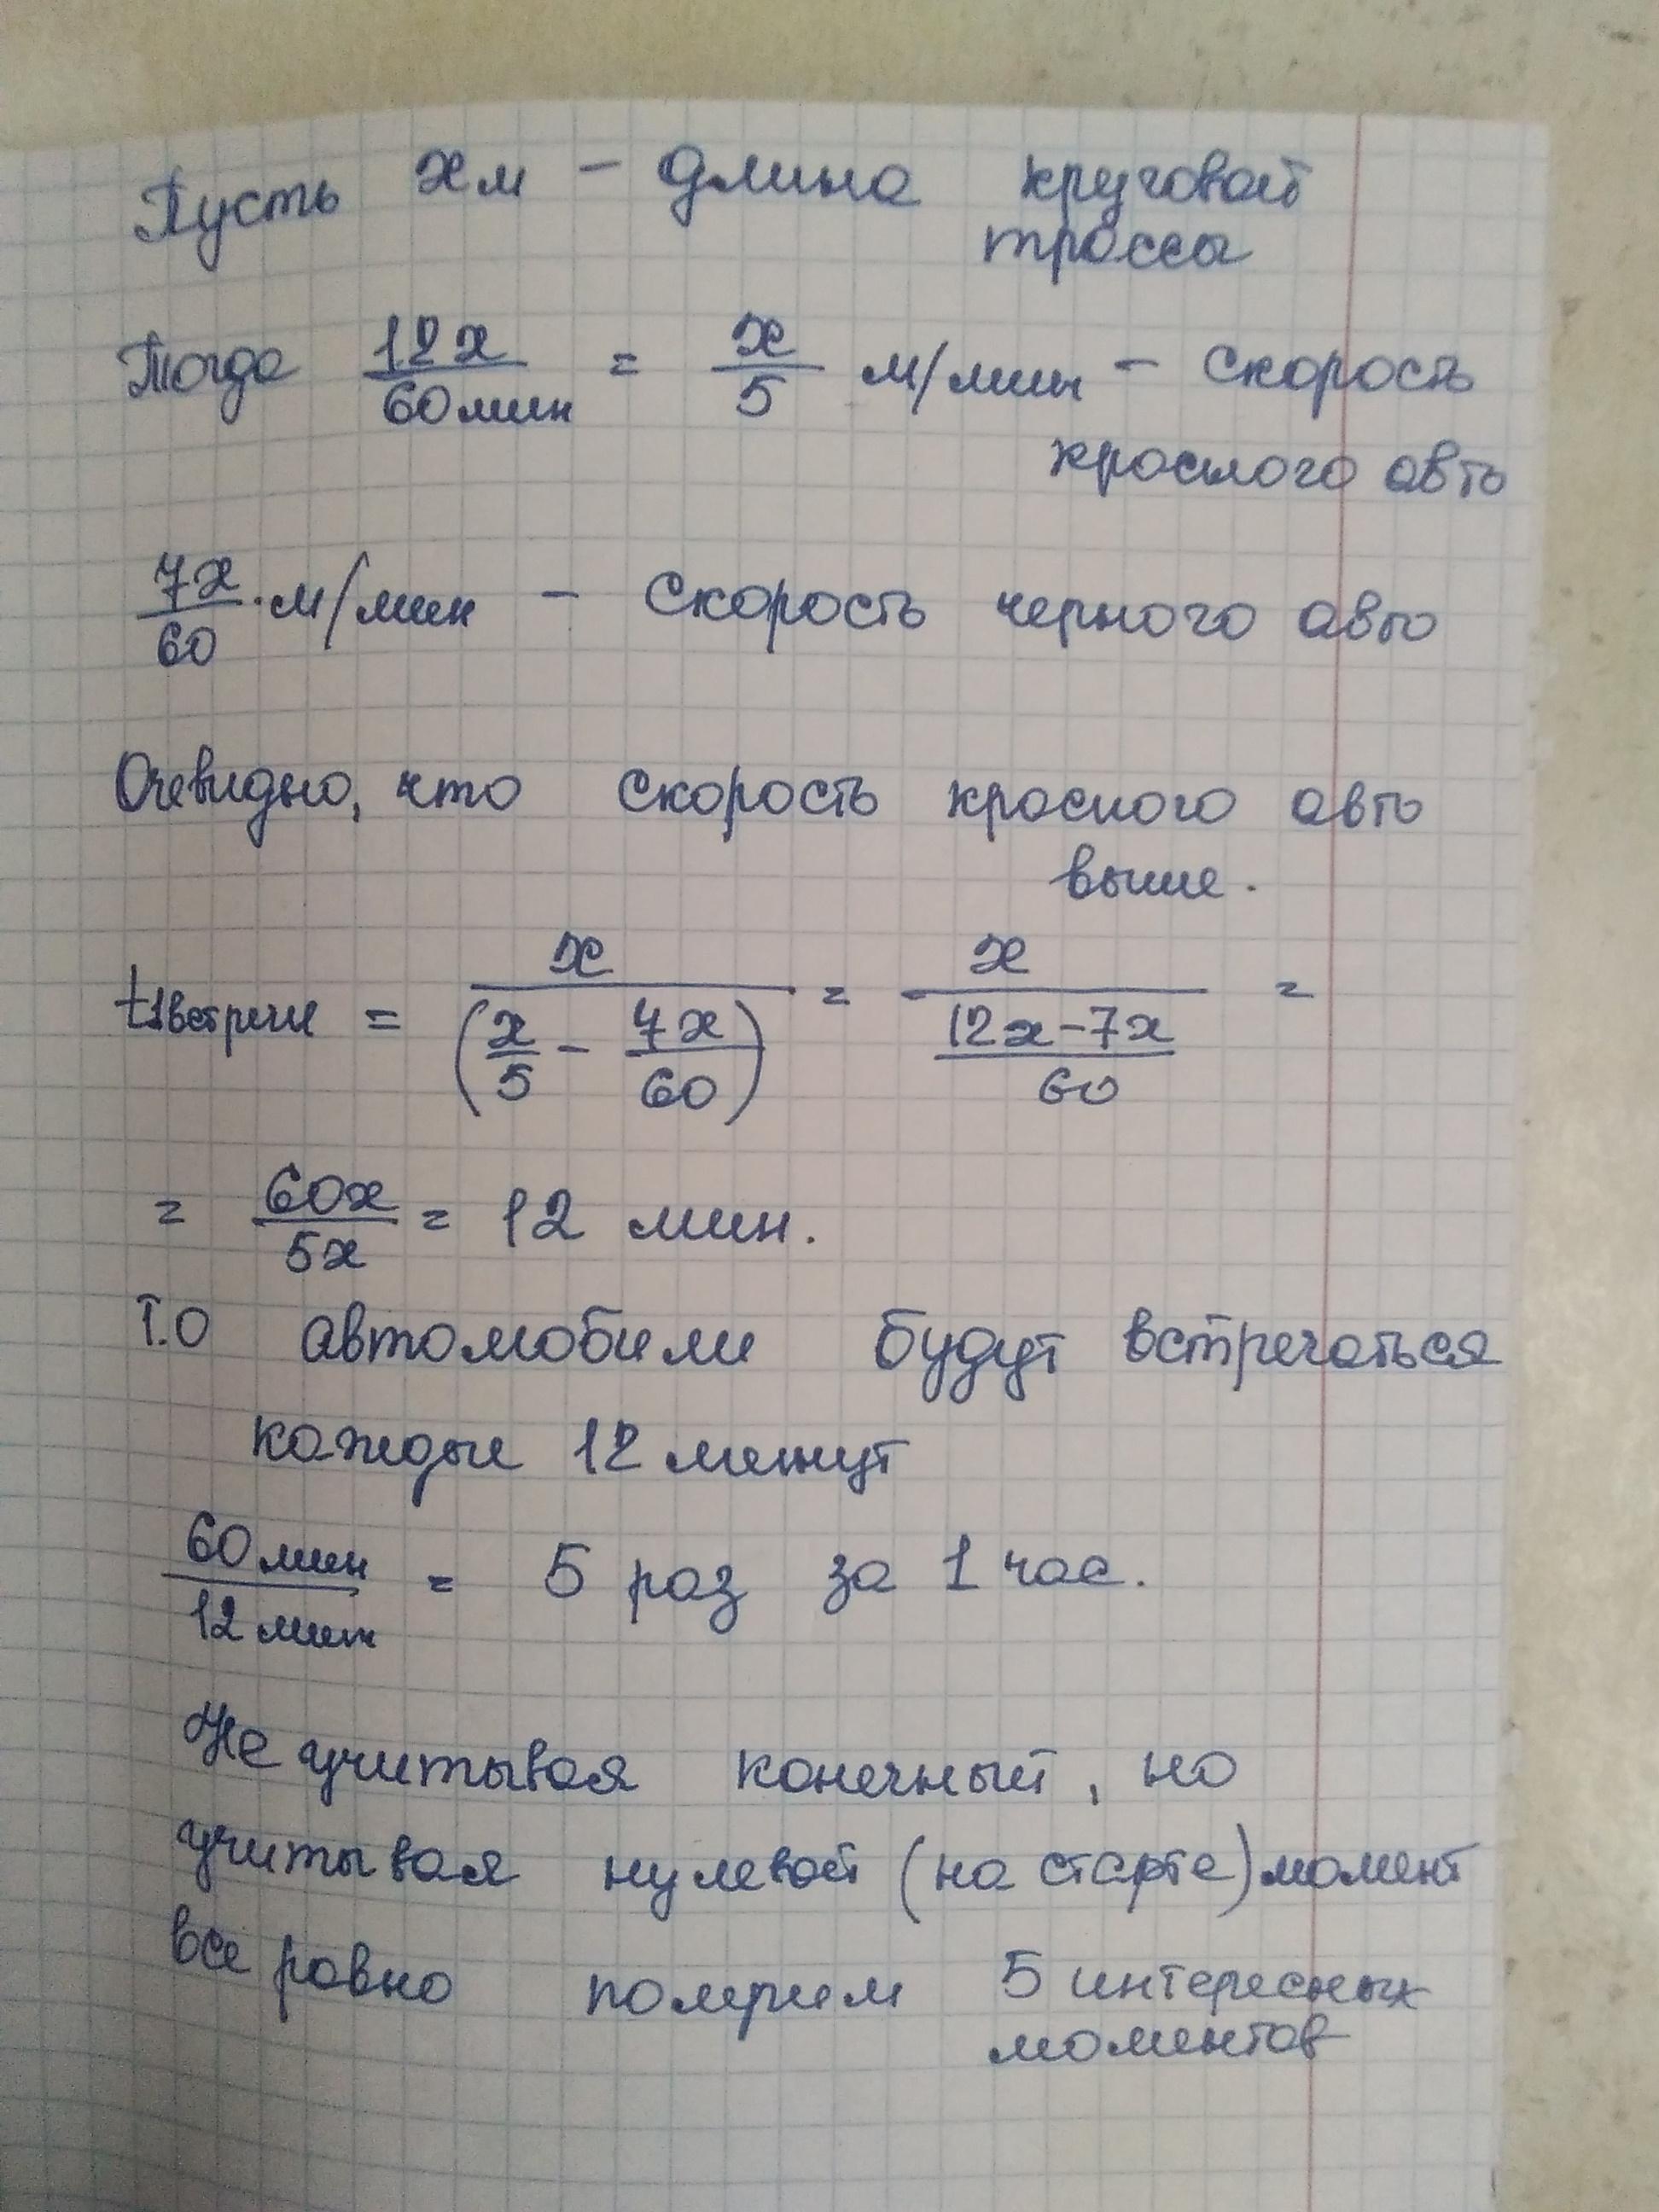 Пусть xм - длина круговой
трассы
Тогда 12x/60мин = x/5 м/мин - скорость
красного авто
7x/60 м/мин - скорость черного авто
Очевидно, что скорость красного авто
выше.
t1встречи = x/(x/5 - 7x/60) = x/((12x-7x)/60) =
= 60x/5x = 12 мин.
Т.О автомобили будут встречаться
каждые 12 минут
60мин/12мин = 5 раз за 1 час.
Не учитывая конечный, но
учитывая нулевой (на старте) момент
все равно получим 5 интересных
моментов